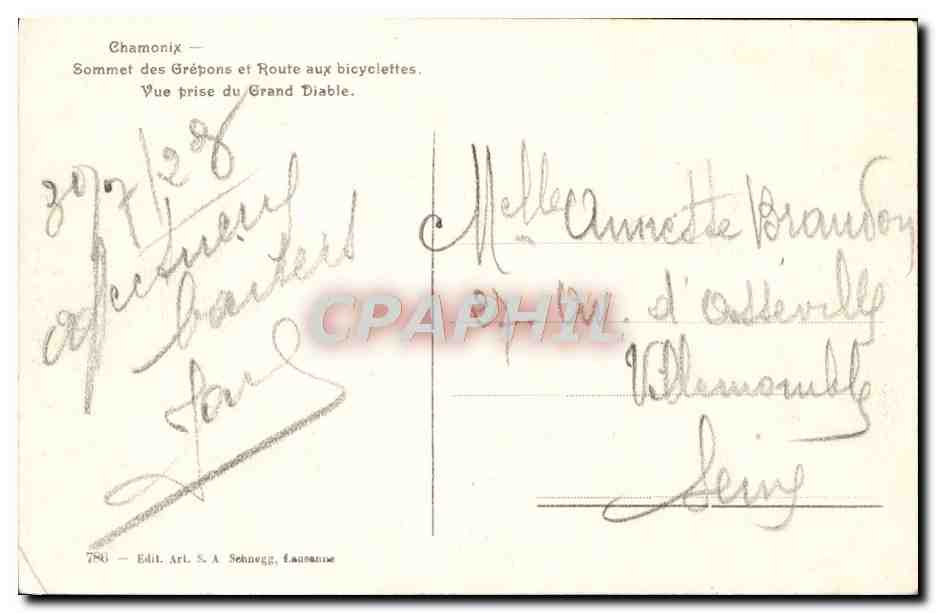 Chamonix —
Sommet des Grépons et Route aux bicyclettes.
Vue prise du Grand Diable.
30/7/28
affectueux
baisers
Melle Annette Brandon
M. d'Osseville
Villemomble
Seine
CPAPHIL
786 — Edit. Art. S. A Schnegg, Lausanne